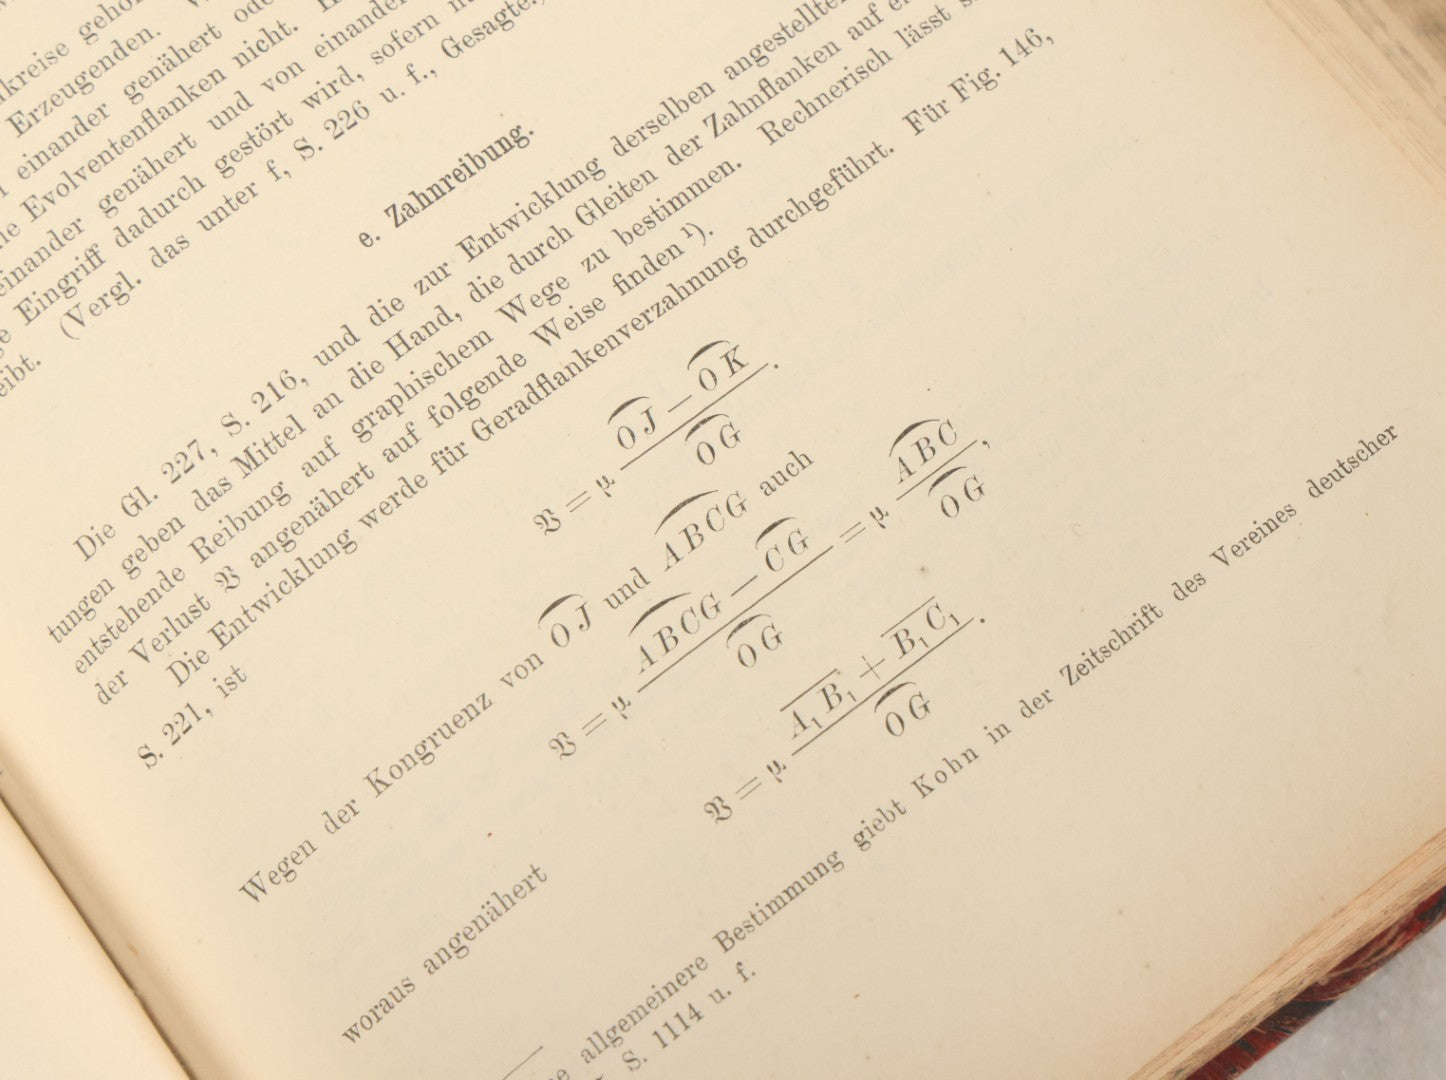 kreise geho
Erzeugenden.
einander genähert ode
ne Evolventenflanken nicht.
einander genähert und von einander
ge Eingriff dadurch gestört wird, sofern
eibt. (Vergl. das unter f, S. 226 u. f., Gesagte.)
e. Zahnreibung.
Die Gl. 227, S. 216, und die zur Entwicklung derselben angestellten
tungen geben das Mittel an die Hand, die durch Gleiten der Zahnflanken auf
entstehende Reibung auf graphischem Wege zu bestimmen. Rechnerisch lässt
der Verlust 𝔙 angenähert auf folgende Weise finden ¹).
Die Entwicklung werde für Geradflankenverzahnung durchgeführt. Für Fig. 146,
S. 221, ist
𝔙 = μ (⌒OJ − ⌒OK) / ⌒OG.
Wegen der Kongruenz von ⌒OJ und ⌒ABCG auch
𝔙 = μ (⌒ABCG − ⌒CG) / ⌒OG = μ ⌒ABC / ⌒OG,
woraus angenähert
𝔙 = μ (A̅₁B̅₁ + B̅₁C̅₁) / ⌒OG.
allgemeinere Bestimmung giebt Kohn in der Zeitschrift des Vereines deutscher
S. 1114 u. f.